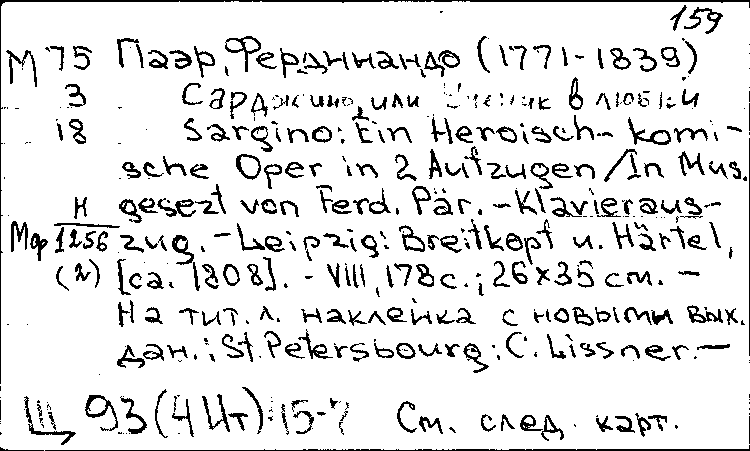 159
М 75 Паэр, Фердинандо (1771-1839)
3 Сарджино, или Ученик в любви
18 Sargino: Ein Heroisch-komi-
sche Oper in 2 Aufzugen/In Mus.
н gesezt von Ferd. Pär. - Klavieraus-
Мф 1256 zug. - Leipzig: Breitkopf u. Härtel,
(2) [ca. 1808]. - VIII, 178 с.; 26x35 см. -
На тит. л. наклейка с новыми вых.
дан.: St. Petersbourg: C. Lissner. -
Щ 93(4Ит)-15-7 См. след. карт.